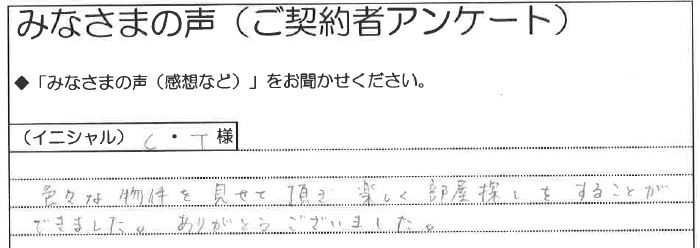 みなさまの声（ご契約者アンケート）
◆「みなさまの声（感想など）」をお聞かせください。
（イニシャル） C ・ T 様
色々な物件を見せて頂き 楽しく部屋探しをすることが
できました。ありがとうございました。